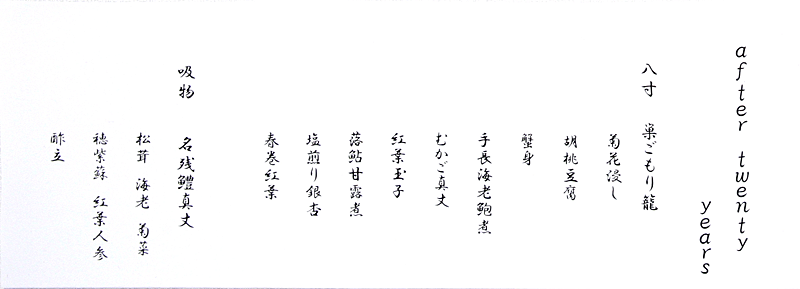 after twenty
years
八寸 巣ごもり籠
菊花浸し
胡桃豆腐
蟹身
手長海老鮑煮
むかご真丈
紅葉玉子
落鮎甘露煮
塩煎り銀杏
春巻紅葉
吸物 名残鱧真丈
松茸 海老 菊菜
穂紫蘇 紅葉人参
酢立